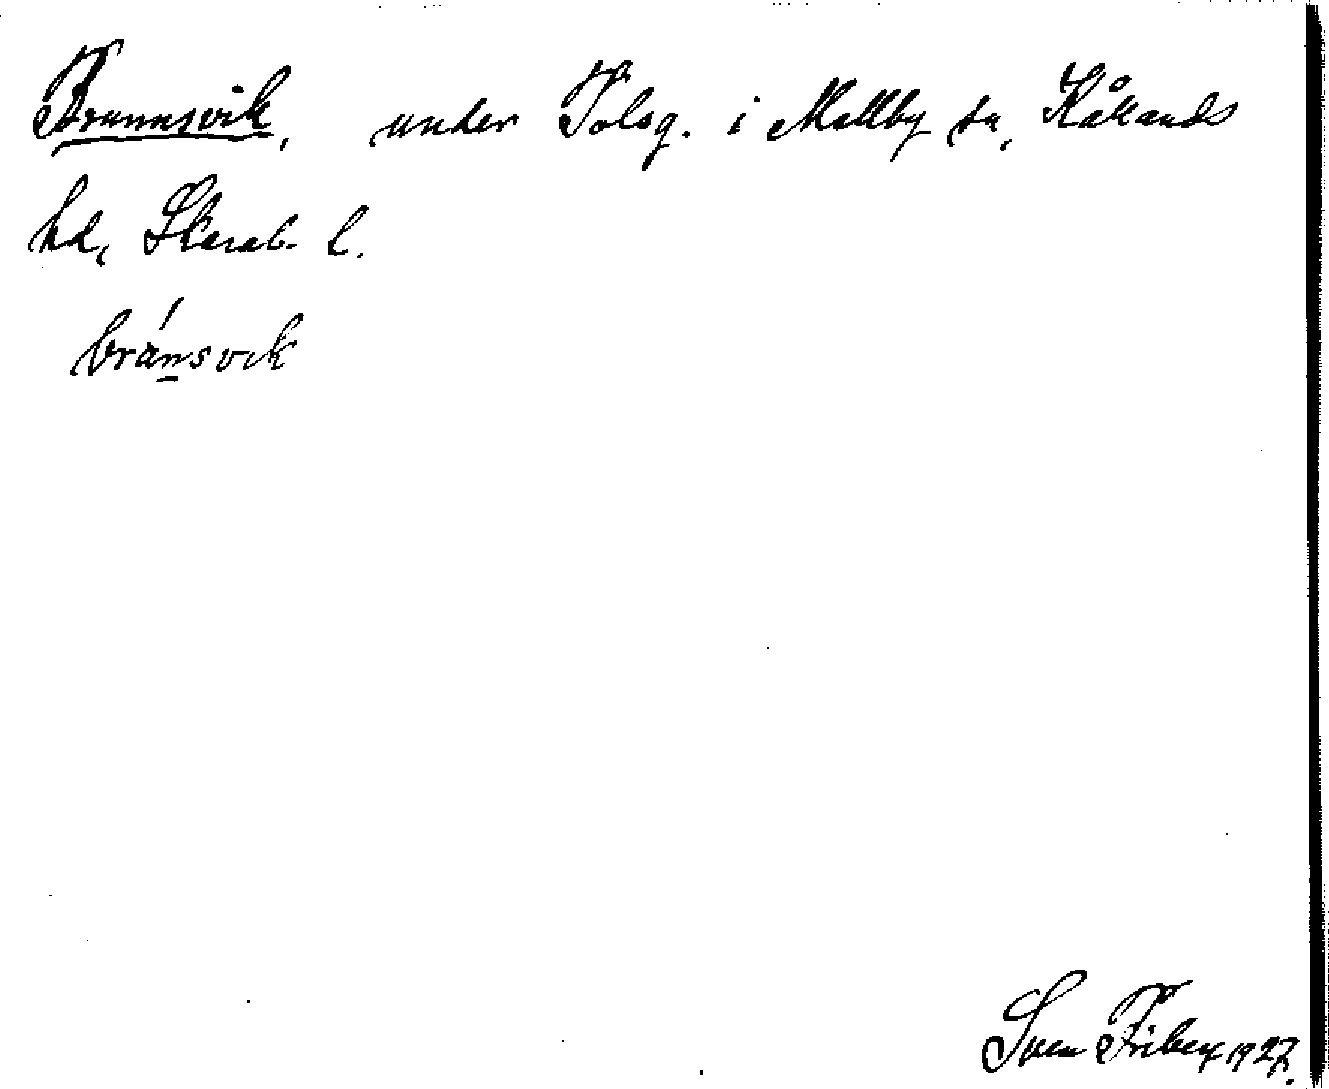 Brunnsvik, under Tolsg. i Mellby sn, Kållands
hd, Skarab. l.
bránsvik
Sven Friberg 1927.